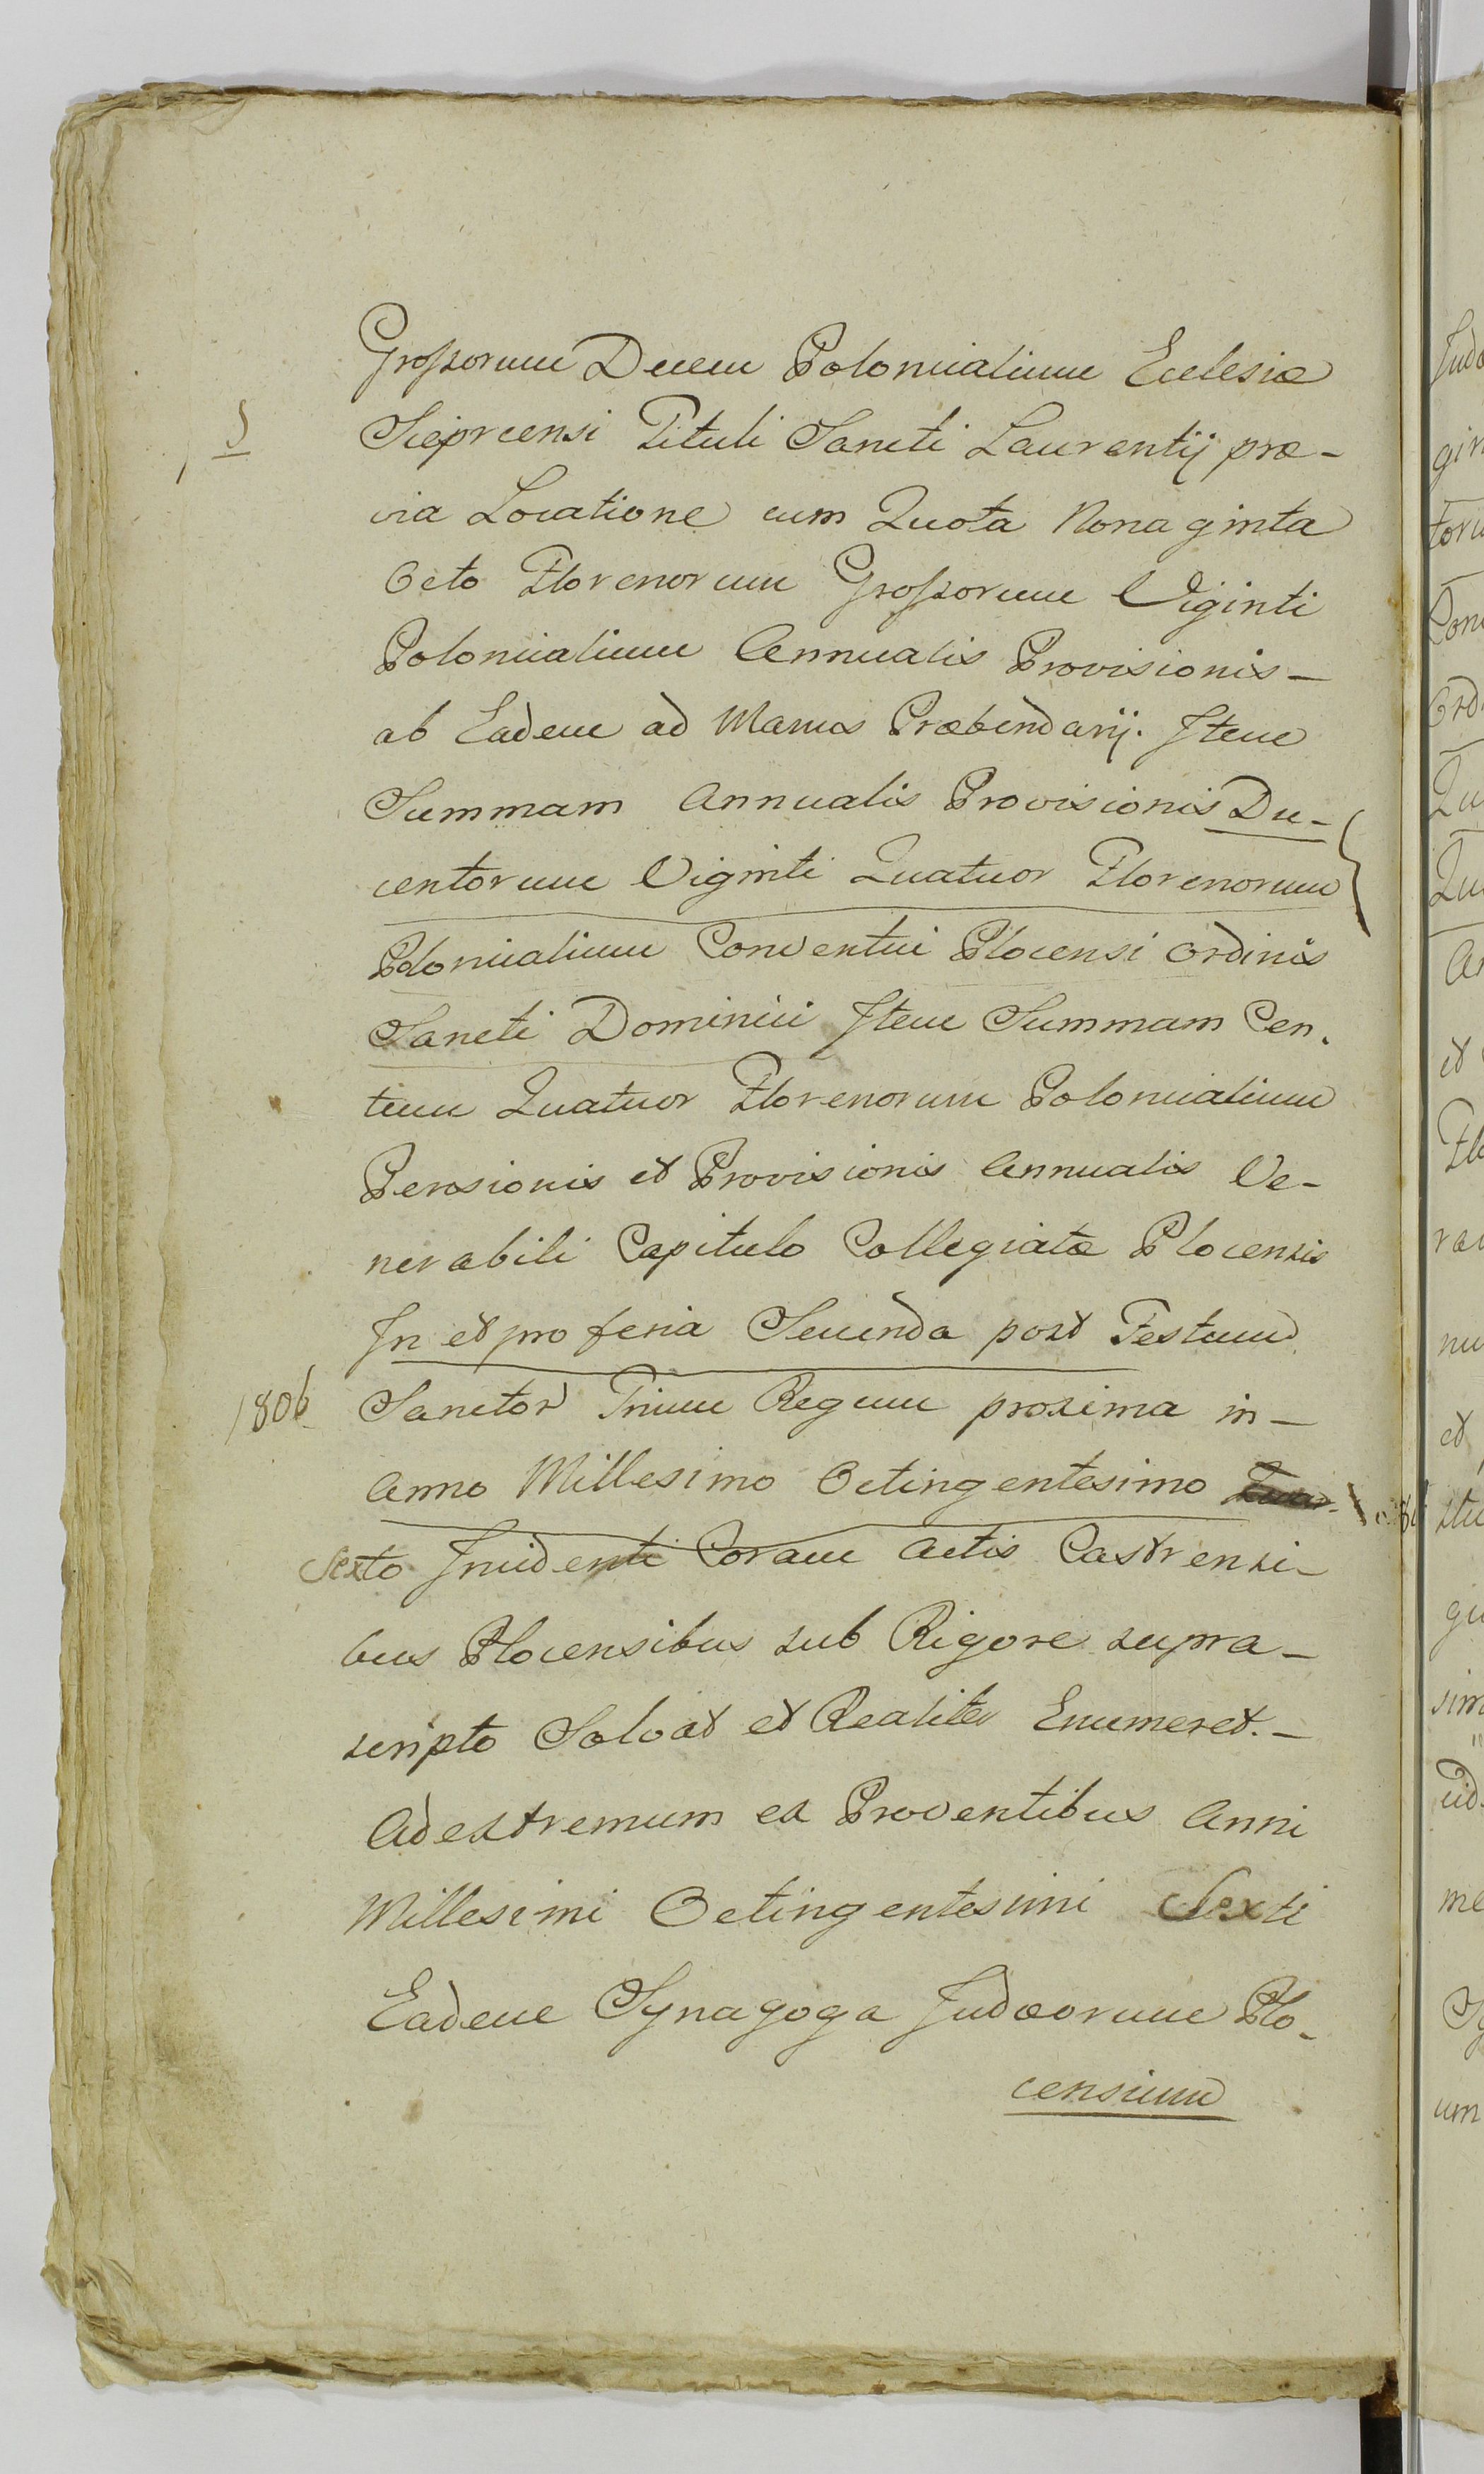 Groſzorum Decem Polonicalium Ecclesiæ
5
Sieprcensi Tituli Sancti Laurentij præ-
via Locatione cum Quota Nonaginta
Octo Florenorum Groſzorum Viginti
Polonicalium Annualis Provisionis -
ab Eadem ad Manus Præbendarij. Item
Summam Annualis Provisionis Du-
centorum Viginti Quatuor Florenorum
Polonicalium Conventui Plocensi Ordinis
Sancti Dominici Item Summam Cen.
tum Quatuor Florenorum Polonicalium
Pensionis et Provisionis Annualis Ve-
nerabili Capitulo Collegiatæ Plocensis
In et pro feria Secunda post Festum
1806 Sanctor Trium Regum proxima in -
Anno Millesimo Octingentesimo
Sexto Incidenti Coram Actis Castrensi-
bus Plocensibus sub Rigore supra -
scripto Solvat et Realiter Enumeret. -
Ad extremum ex Proventibus Anni
Millesimi Octingentesimi Sexti
Eadem Synagoga Judæorum Plo-
censium